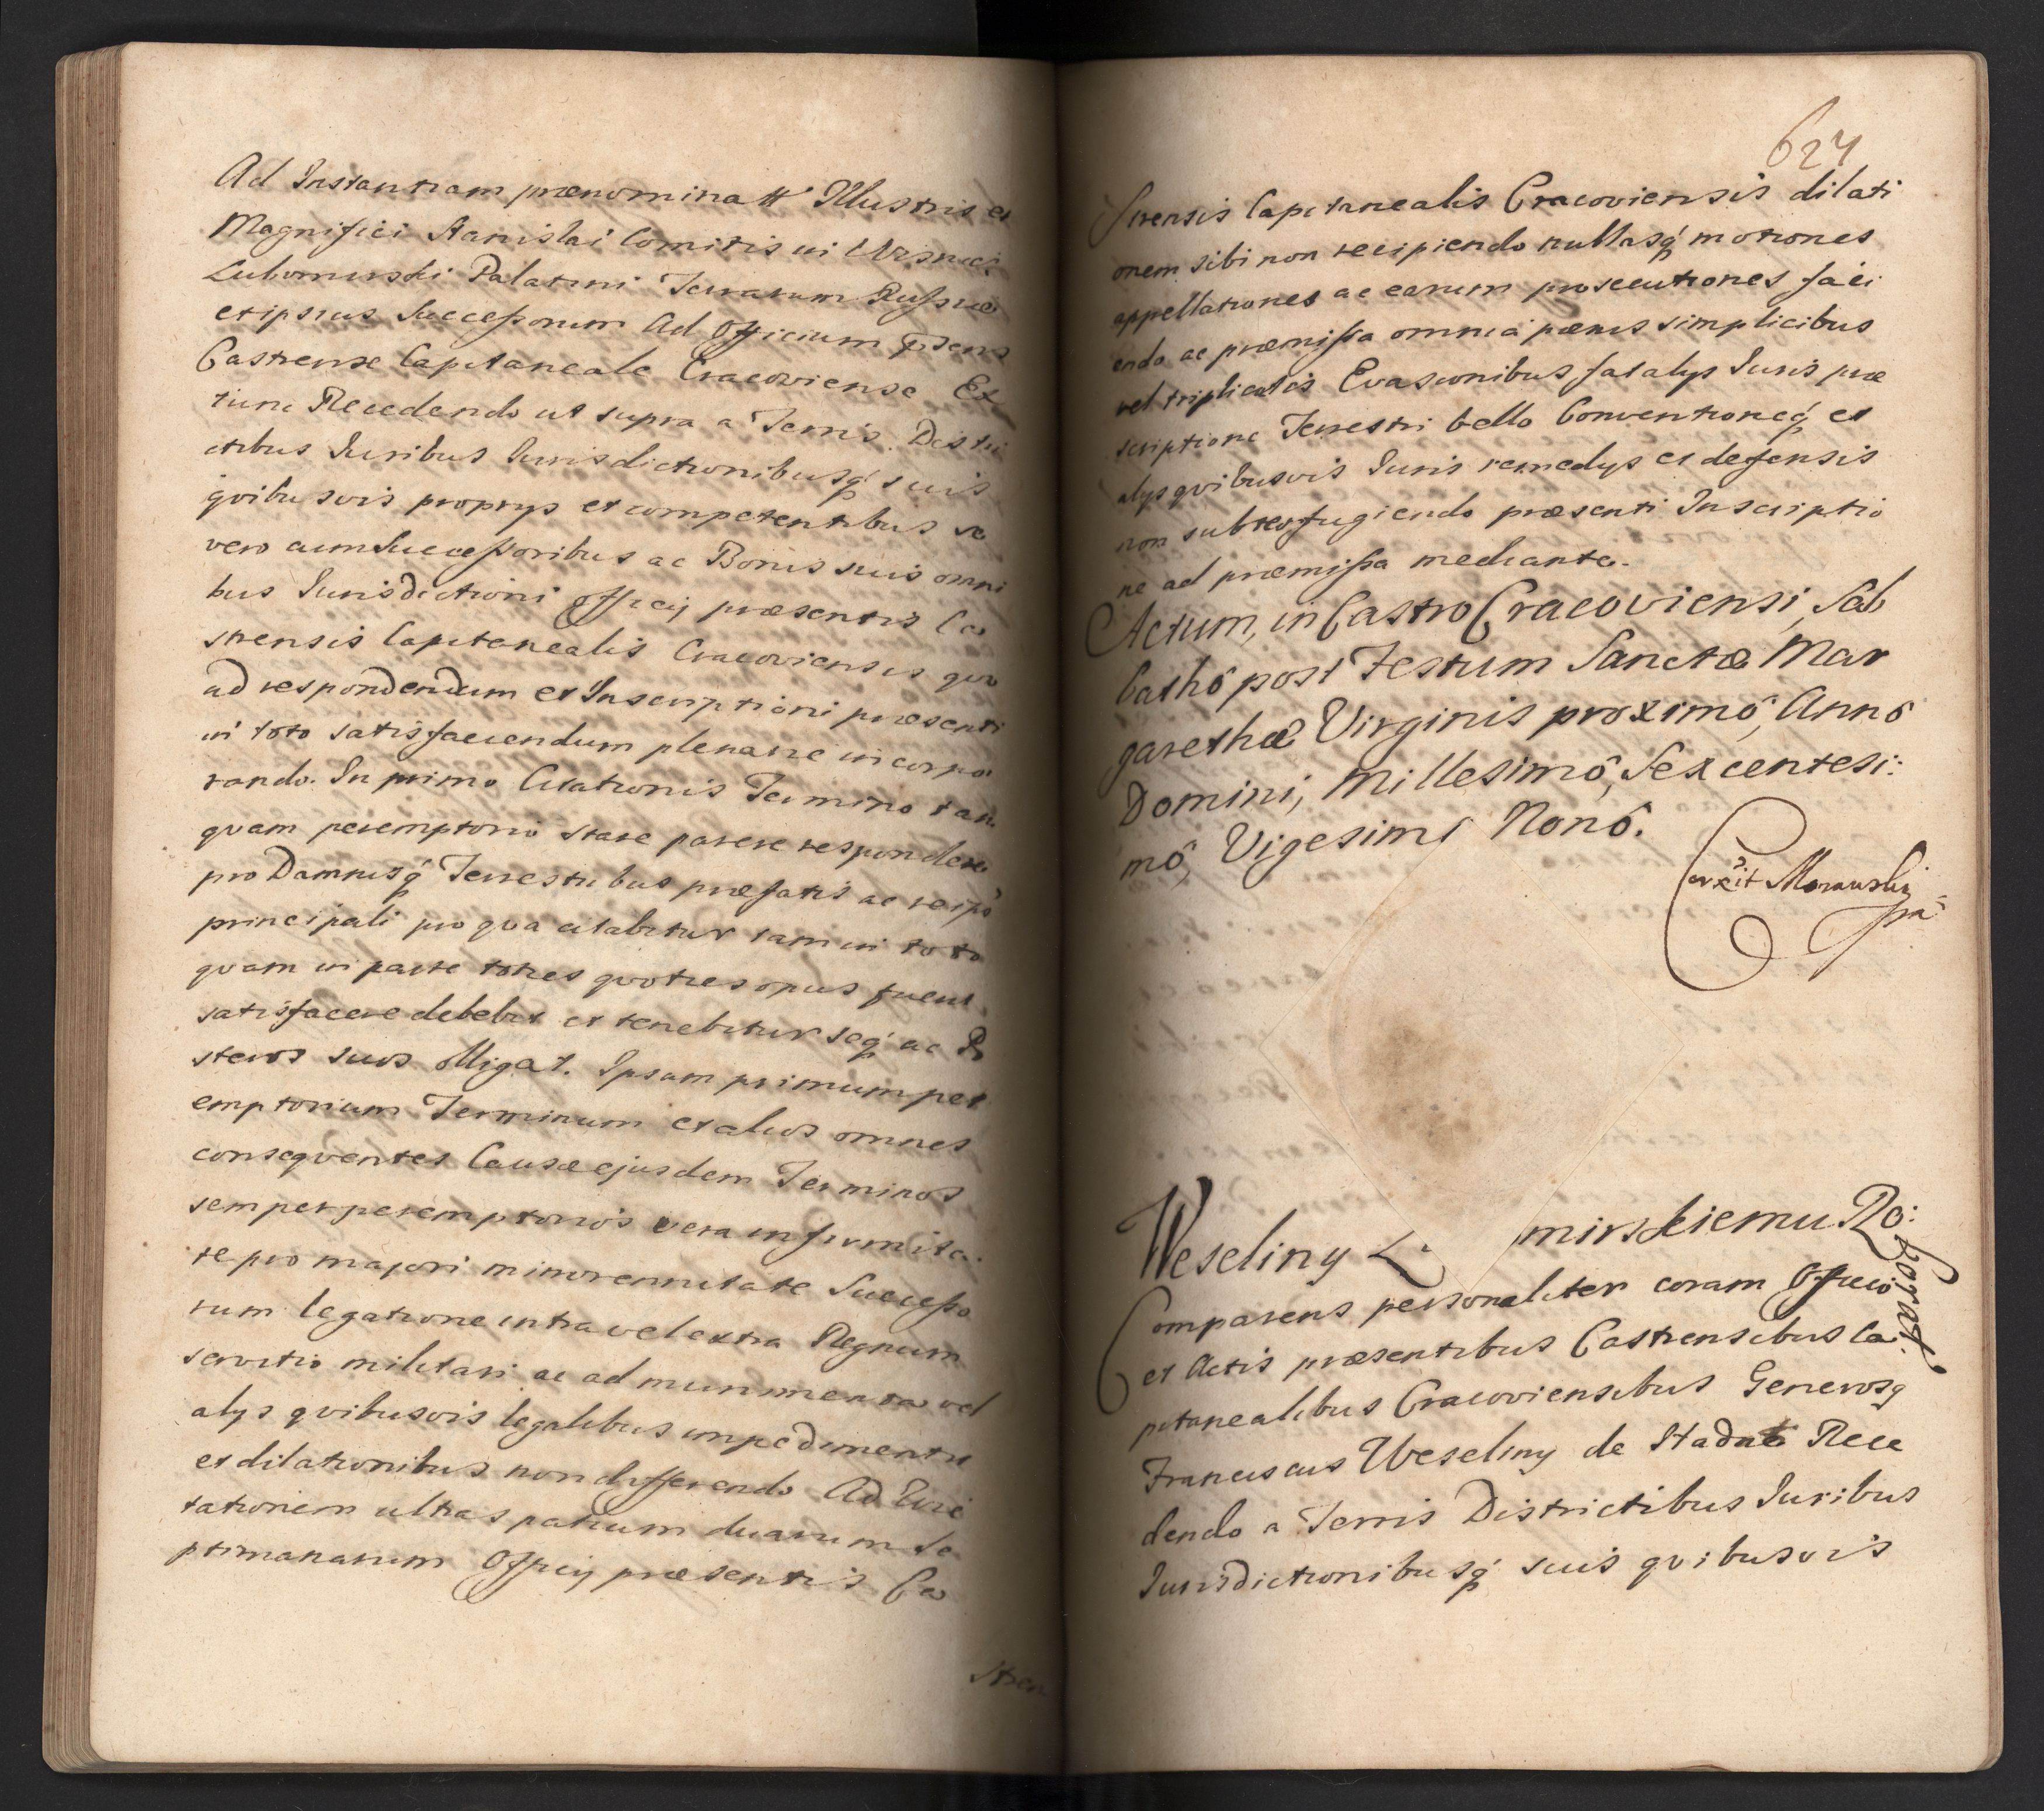 Ad Instantiam prænominatt Illustris et
Magnifici Stanislai Comitis in Wisnicz
Lubomirski Palatini Terrarum Russiæ
et ipsius Successorum Ad Officium præsens
Castrense Capitaneale Cracoviense Ex
tunc Recedendo ut supra a Terris Distri
ctibus Iuribus Iurisdictionibusq́ suis
qvibusvis proprys et competentibus se
vero cum Successoribus ac Bonis suis omni
bus Iurisdictioni Officij præsentis Ca
strensis Capitanealis Cracoviensis qvo
ad respondendum et Inscriptioni præsenti
in toto satisfaciendum plenarie incorpo
rando. In primo Citationis Termino tan
qvam peremptorio stare parere respondere
pro Damnisq́ Terrestribus præfatis ac re ipsa
principali pro qva citabitur tam in toto
qvam in parte toties qvoties opus fuerit
satisfacere debebit et tenebitur seq́ ac Po
steros suos obligat. Ipsum primum per
emptorium Terminum et alios omnes
conseqventes Causæ ejusdem Terminos
semper peremptorios vera infirmita
te pro majori minorennitate Successo
rum legatione intra vel extra Regnum
servitio militari ac ad munimenta vel
alys qvibusvis legalibus impedimentis
et dilationibus non differendo Ad Evi
tationem ultra spatium duarum Se
ptimanarum Officij præsentis Ca
stren
624
strensis Capitanealis Cracoviensis dilati
onem sibi non recipiendo nullasq́ motiones
appellationes ac earum prosecutiones faci
endo ac præmissa omnia pænis simplicibus
vel triplicatis Evasionibus fatalys Iuris præ
scriptione Terrestri bello Conventioneq́ et
alys qvibusvis Iuris remedys et defensis
non subterfugiendo præsenti Inscriptio
ne ad præmissa mediante.
Actum, in Castro Cracoviensi, Sab
bathô post Festum Sanctæ Mar
garethæ Virginis proximô, Annô
Domini, Millesimô, Sexcentesi:
mô, Vigesimô Nonô.
Corexit Morawski
mp
Weseliny L mirskiemu Ro:
borat.
Comparens personaliter coram Officio
et Actis præsentibus Castrensibus Ca:
pitanealibus Cracoviensibus Generosq
Franciscus Weseliny de Hadat Rece
dendo a Terris Districtibus Iuribus
Iurisdictionibusq́ suis qvibusvis